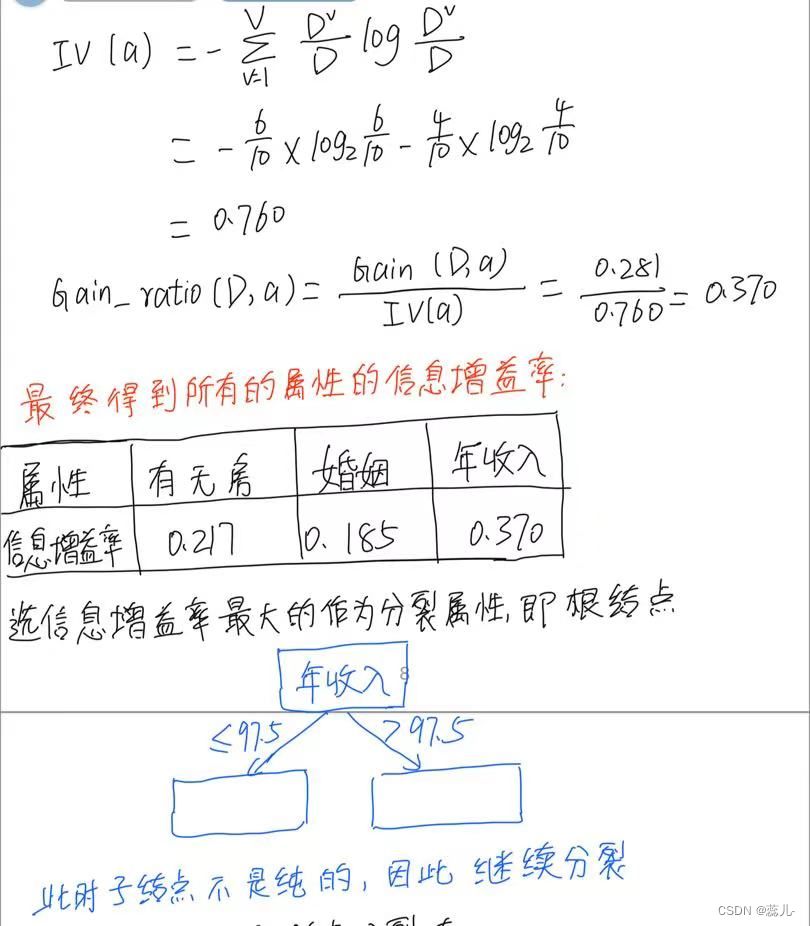 IV(a) = - ∑_{v=1}^{V} D^v/D log D^v/D
= - 6/10 × log₂ 6/10 - 4/10 × log₂ 4/10
= 0.760
Gain_ratio(D,a) = Gain(D,a)/IV(a) = 0.281/0.760 = 0.370
最终得到所有的属性的信息增益率:
属性 有无房 婚姻 年收入
信息增益率 0.217 0.185 0.370
选信息增益率最大的作为分裂属性,即根结点
年收入 8
≤97.5 >97.5
此时子结点不是纯的,因此 继续分裂
CSDN @蕊儿-